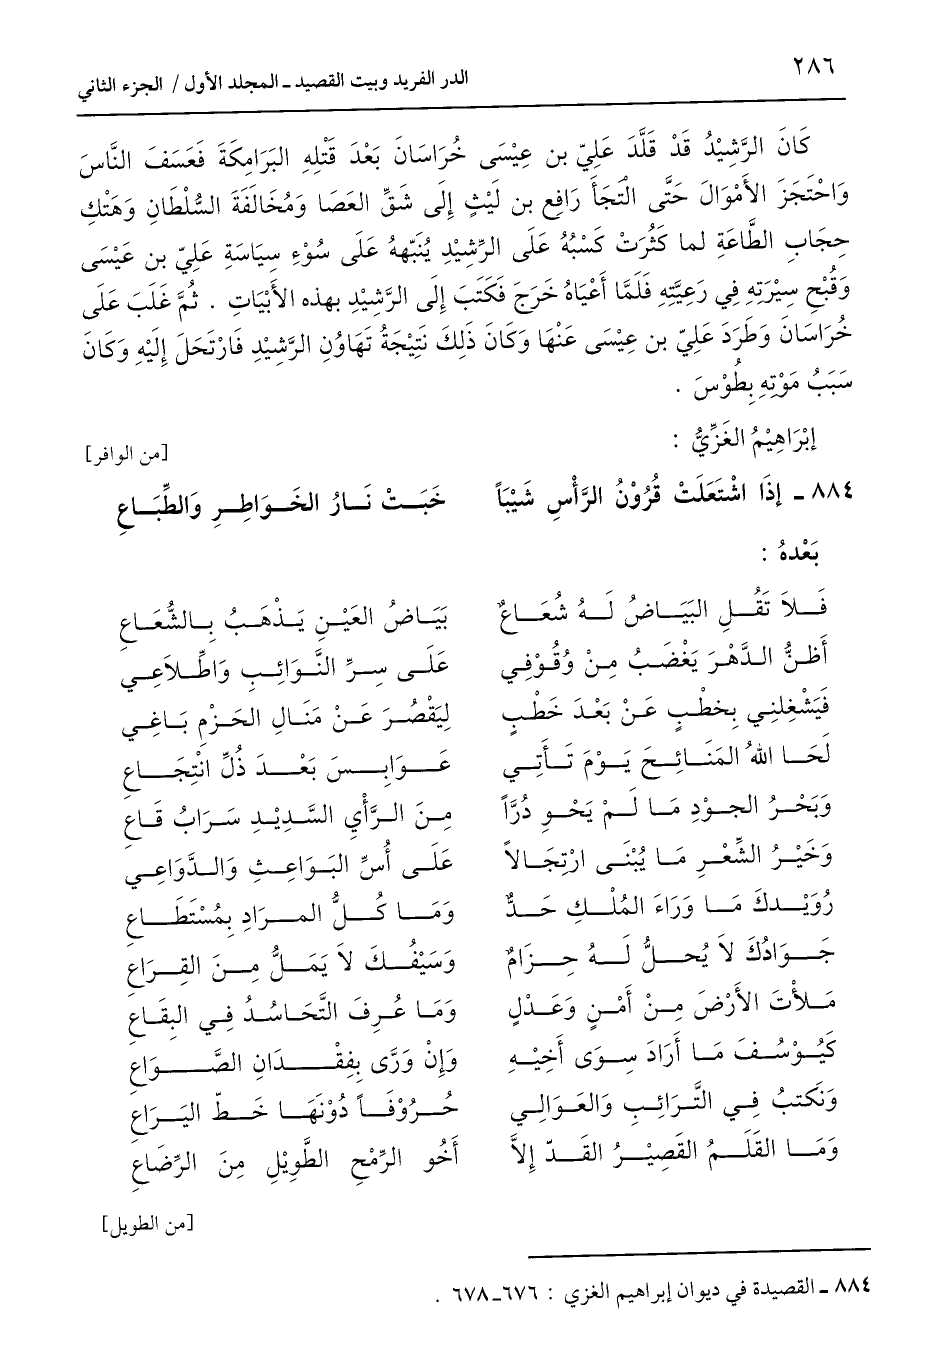 ٢٨٦
الدر الفريد وبيت القصيد ـ المجلد الأول / الجزء الثاني
كَانَ الرَّشِيْدُ قَدْ قَلَّدَ عَلِيّ بن عِيْسَى خُرَاسَانَ بَعْدَ قَتْلِهِ البَرَامِكَةَ فَعَسَفَ النَّاسَ
وَاحْتَجَزَ الأَمْوَالَ حَتَّى الْتَجَأَ رَافِع بن لَيْثٍ إِلَى شَقِّ العَصَا وَمُخَالَفَةَ السُّلْطَانِ وَهَتْكِ
حِجَابِ الطَّاعَةِ لما كَثُرَتْ كَتْبُهُ عَلَى الرِّشِيْدِ يُنَبّههُ عَلَى سُوْءِ سِيَاسَةِ عَلِيّ بن عَيْسَى
وَقُبْحِ سِيْرَتِهِ فِي رَعِيَّتِهِ فَلَمَّا أَعْيَاهُ خَرَجَ فَكَتَبَ إِلَى الرَّشِيْدِ بهذه الأَبْيَاتِ . ثُمَّ غَلَبَ عَلَى
خُرَاسَانَ وَطَرَدَ عَلِيّ بن عِيْسَى عَنْهَا وَكَانَ ذَلِكَ نَتِيْجَةُ تَهَاوُنِ الرَّشِيْدِ فَارْتَحَلَ إِلَيْهِ وَكَانَ
سَبَبُ مَوْتِهِ بِطُوْسَ .
إِبْرَاهِيْمُ الغَزِّيُّ :
[من الوافر]
٨٨٤ ـ إِذَا اشْتَعَلَتْ قُرُوْنُ الرَّأْسِ شَيْبَاً خَبَتْ نَارُ الخَوَاطِرِ وَالطِّبَاعِ
بَعْدهُ :
فَلاَ تَقُلِ البَيَاضُ لَهُ شُعَاعٌ بَيَاضُ العَيْنِ يَذْهَبُ بِالشُّعَاعِ
أَظنُّ الدَّهْرَ يَغْضَبُ مِنْ وُقُوْفِي عَلَى سِرِّ النَّوَائِبِ وَاطِّلاَعِي
فَيَشْغِلنِي بِخطْبٍ عَنْ بَعْدَ خَطْبٍ لِيَقْصُرَ عَنْ مَنَالِ الحَزْمِ بَاغِي
لَحَا اللهُ المَنَائِحَ يَوْمَ تَأْتِي عَوَابِسَ بَعْدَ ذُلِّ انْتِجَاعِ
وَبَحْرُ الجوْدِ مَا لَمْ يَحْوِ دُرَّاً مِنَ الرَّأْيِ السَّدِيْدِ سَرَابُ قَاعِ
وَخَيْرُ الشِّعْرِ مَا يُبْنَى ارْتِجَالاً عَلَى أُسِّ البَوَاعِثِ وَالدَّوَاعِي
رُوَيْدكَ مَا وَرَاءَ المُلْكِ حَدٌّ وَمَا كُلُّ المرَادِ بِمُسْتَطَاعِ
جَوَادُكَ لاَ يُحلُّ لَهُ حِزَامٌ وَسَيْفُكَ لاَ يَمَلُّ مِنَ القِرَاعِ
مَلأْتَ الأَرْضَ مِنْ أَمْنٍ وَعَدْلٍ وَمَا عُرِفَ التَّحَاسُدُ فِي البِقَاعِ
كَيُوْسُفَ مَا أَرَادَ سِوَى أَخِيْهِ وَإِنْ وَرَّى بِفِقْدَانِ الصُّوَاعِ
وَنَكتبُ فِي التَّرَائِبِ وَالعَوَالِي حُرُوْفَاً دُوْنَهَا خَطّ اليَرَاعِ
وَمَا القَلَمُ القَصِيْرُ القَدِّ إِلاَّ أَخُو الرّمْحِ الطَّوِيْلِ مِنَ الرّضَاعِ
[من الطويل]
٨٨٤ ـ القصيدة في ديوان إبراهيم الغزي : ٦٧٦ـ٦٧٨ .